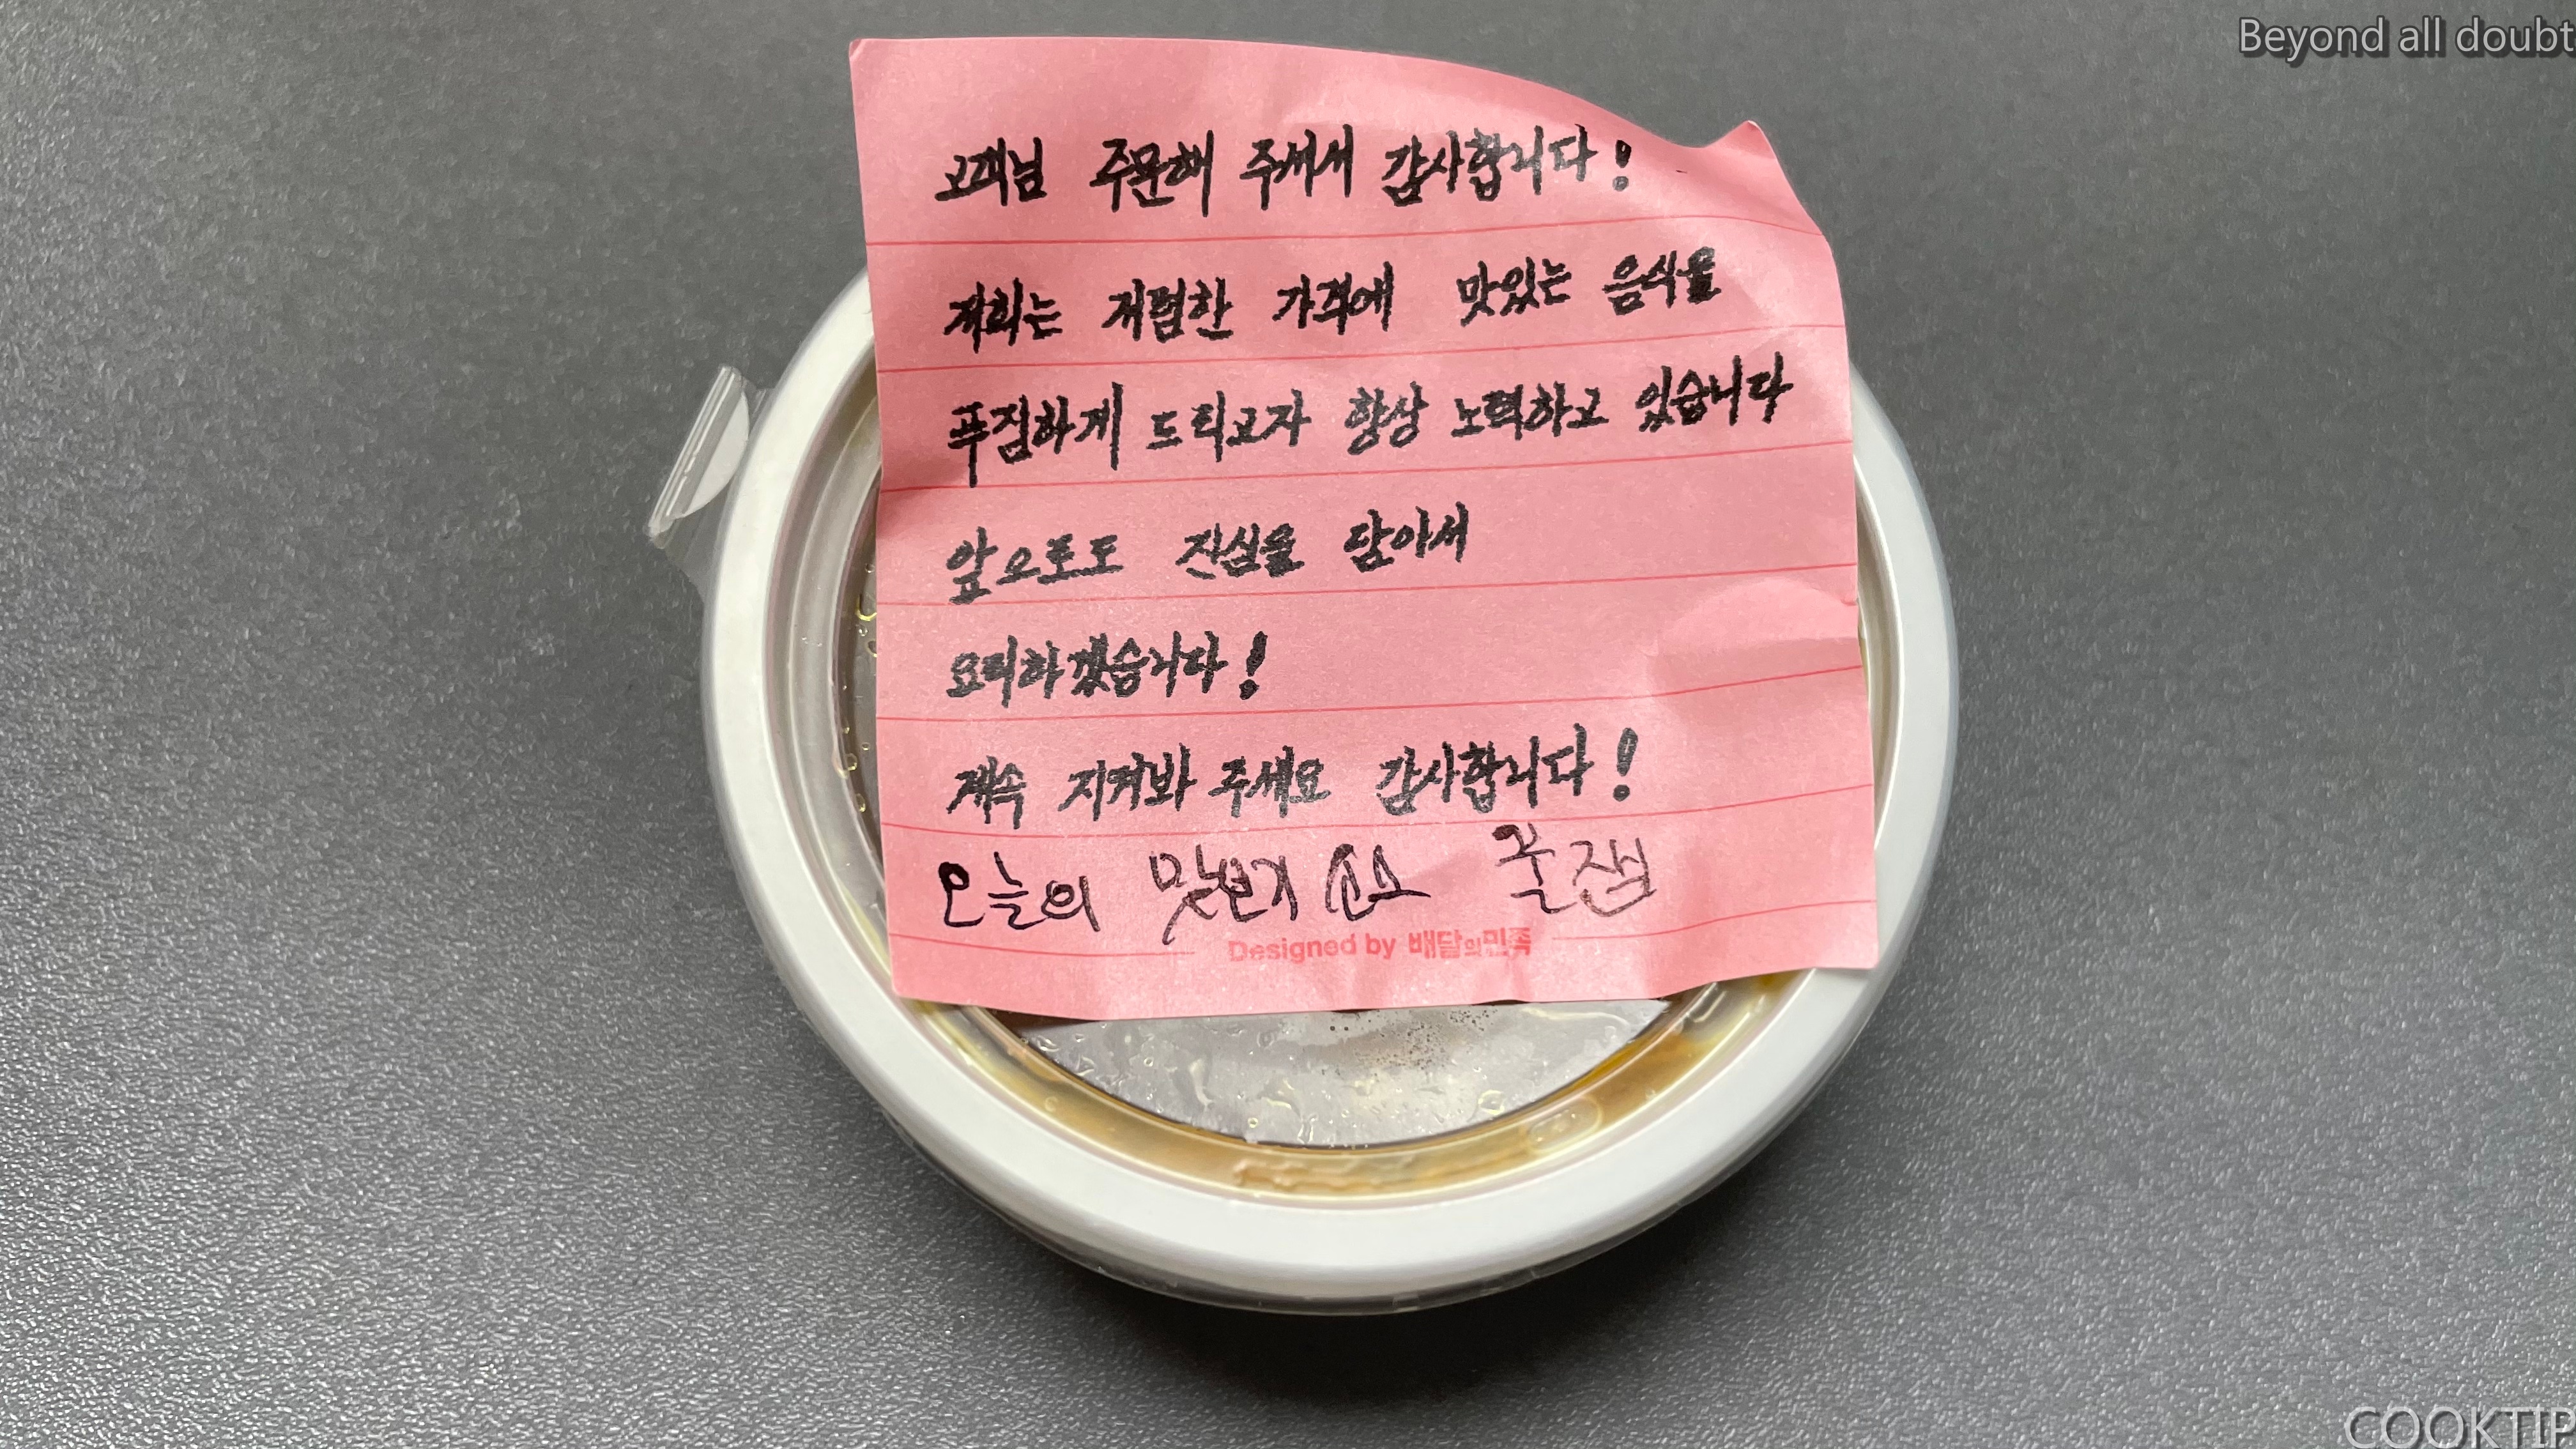 Beyond all doubt
고객님 주문해 주셔서 감사합니다!
저희는 저렴한 가격에 맛있는 음식을
푸짐하게 드리고자 항상 노력하고 있습니다
앞으로도 진심을 담아서
요리하겠습니다!
계속 지켜봐 주세요 감사합니다!
오늘의 맛보기
Designed by 배달의민족
COOKTIP